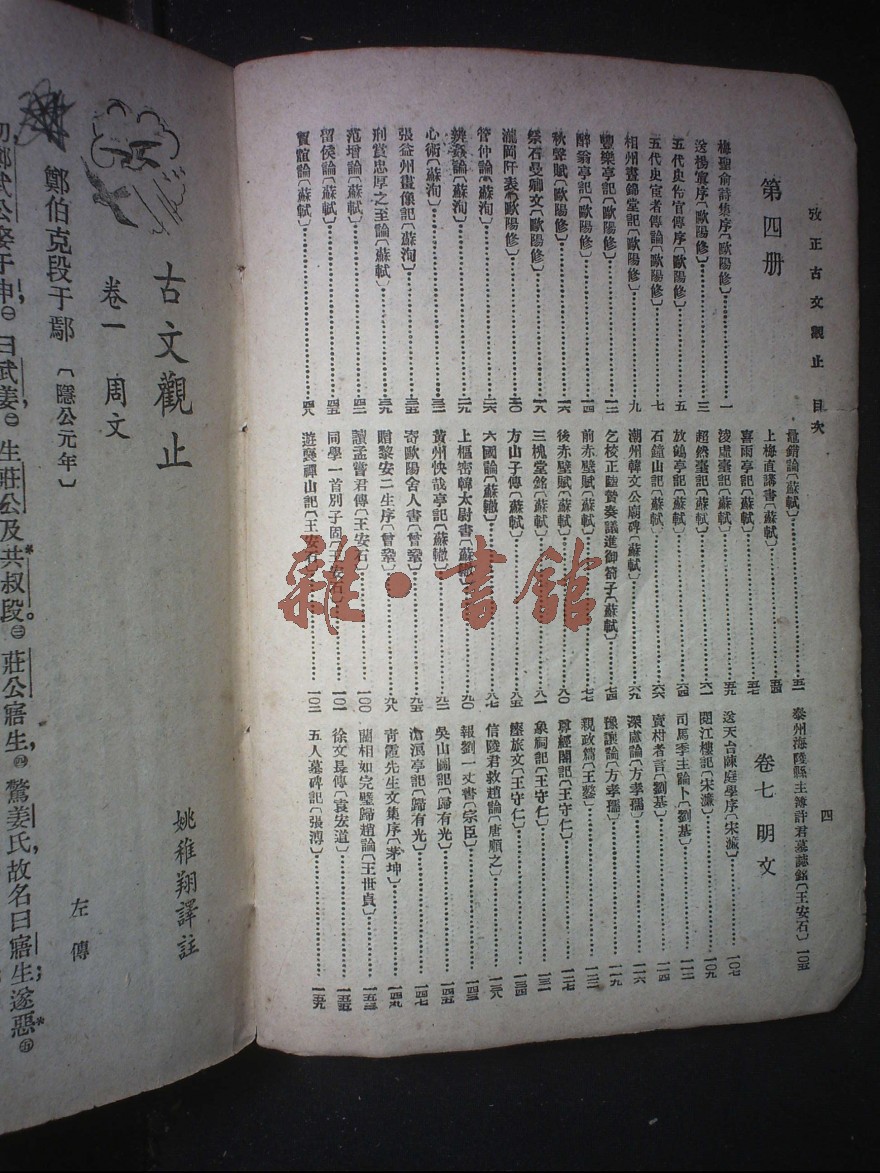 攷正古文觀止 目次
四
第四册
梅聖俞詩集序〔歐陽修〕 一
送楊寘序〔歐陽修〕 三
五代史伶官傳序〔歐陽修〕 五
五代史宦者傳論〔歐陽修〕 七
相州晝錦堂記〔歐陽修〕 九
豐樂亭記〔歐陽修〕 一二
醉翁亭記〔歐陽修〕 一四
秋聲賦〔歐陽修〕 一六
祭石曼卿文〔歐陽修〕 一八
瀧岡阡表〔歐陽修〕 二〇
管仲論〔蘇洵〕 二六
辨姦論〔蘇洵〕 二九
心術〔蘇洵〕 三二
張益州畫像記〔蘇洵〕 三五
刑賞忠厚之至論〔蘇軾〕 三九
范增論〔蘇軾〕 四二
留侯論〔蘇軾〕 四五
賈誼論〔蘇軾〕 四八
鼂錯論〔蘇軾〕 五一
上梅直講書〔蘇軾〕
喜雨亭記〔蘇軾〕 五七
淩虛臺記〔蘇軾〕 五九
超然臺記〔蘇軾〕 六一
放鶴亭記〔蘇軾〕 六四
石鐘山記〔蘇軾〕 六六
潮州韓文公廟碑〔蘇軾〕 六九
乞校正陸贄奏議進御箚子〔蘇軾〕 七四
前赤壁賦〔蘇軾〕 七七
後赤壁賦〔蘇軾〕 八〇
三槐堂銘〔蘇軾〕 八一
方山子傳〔蘇軾〕 八五
六國論〔蘇轍〕 八七
上樞密韓太尉書〔蘇轍〕 九〇
黃州快哉亭記〔蘇轍〕
寄歐陽舍人書〔曾鞏〕 九五
贈黎安二生序〔曾鞏〕 九八
讀孟嘗君傳〔王安石〕 一〇〇
同學一首別子固〔王安石〕 一〇一
遊褒禪山記〔王安石〕 一〇二
泰州海陵縣主簿許君墓誌銘〔王安石〕 一〇五
卷七 明文
送天台陳庭學序〔宋濂〕 一〇七
閱江樓記〔宋濂〕 一〇九
司馬季主論卜〔劉基〕 一一二
賣柑者言〔劉基〕 一一四
深慮論〔方孝孺〕 一一六
豫讓論〔方孝孺〕 一一九
親政篇〔王鏊〕 一二二
尊經閣記〔王守仁〕 一二七
象祠記〔王守仁〕 一三一
瘞旅文〔王守仁〕 一三四
信陵君救趙論〔唐順之〕 一三八
報劉一丈書〔宗臣〕 一四二
吳山圖記〔歸有光〕 一四五
滄浪亭記〔歸有光〕 一四七
青霞先生文集序〔茅坤〕 一四九
藺相如完璧歸趙論〔王世貞〕 一五二
徐文長傳〔袁宏道〕 一五五
五人墓碑記〔張溥〕 一五九
古文觀止
姚稚翔譯註
卷一 周文
鄭伯克段于鄢〔隱公元年〕
左傳
初鄭武公娶于申㊀曰武姜㊁生莊公及共叔段㊂莊公寤生㊃驚姜氏故名曰寤生遂惡㊄
雜·書館